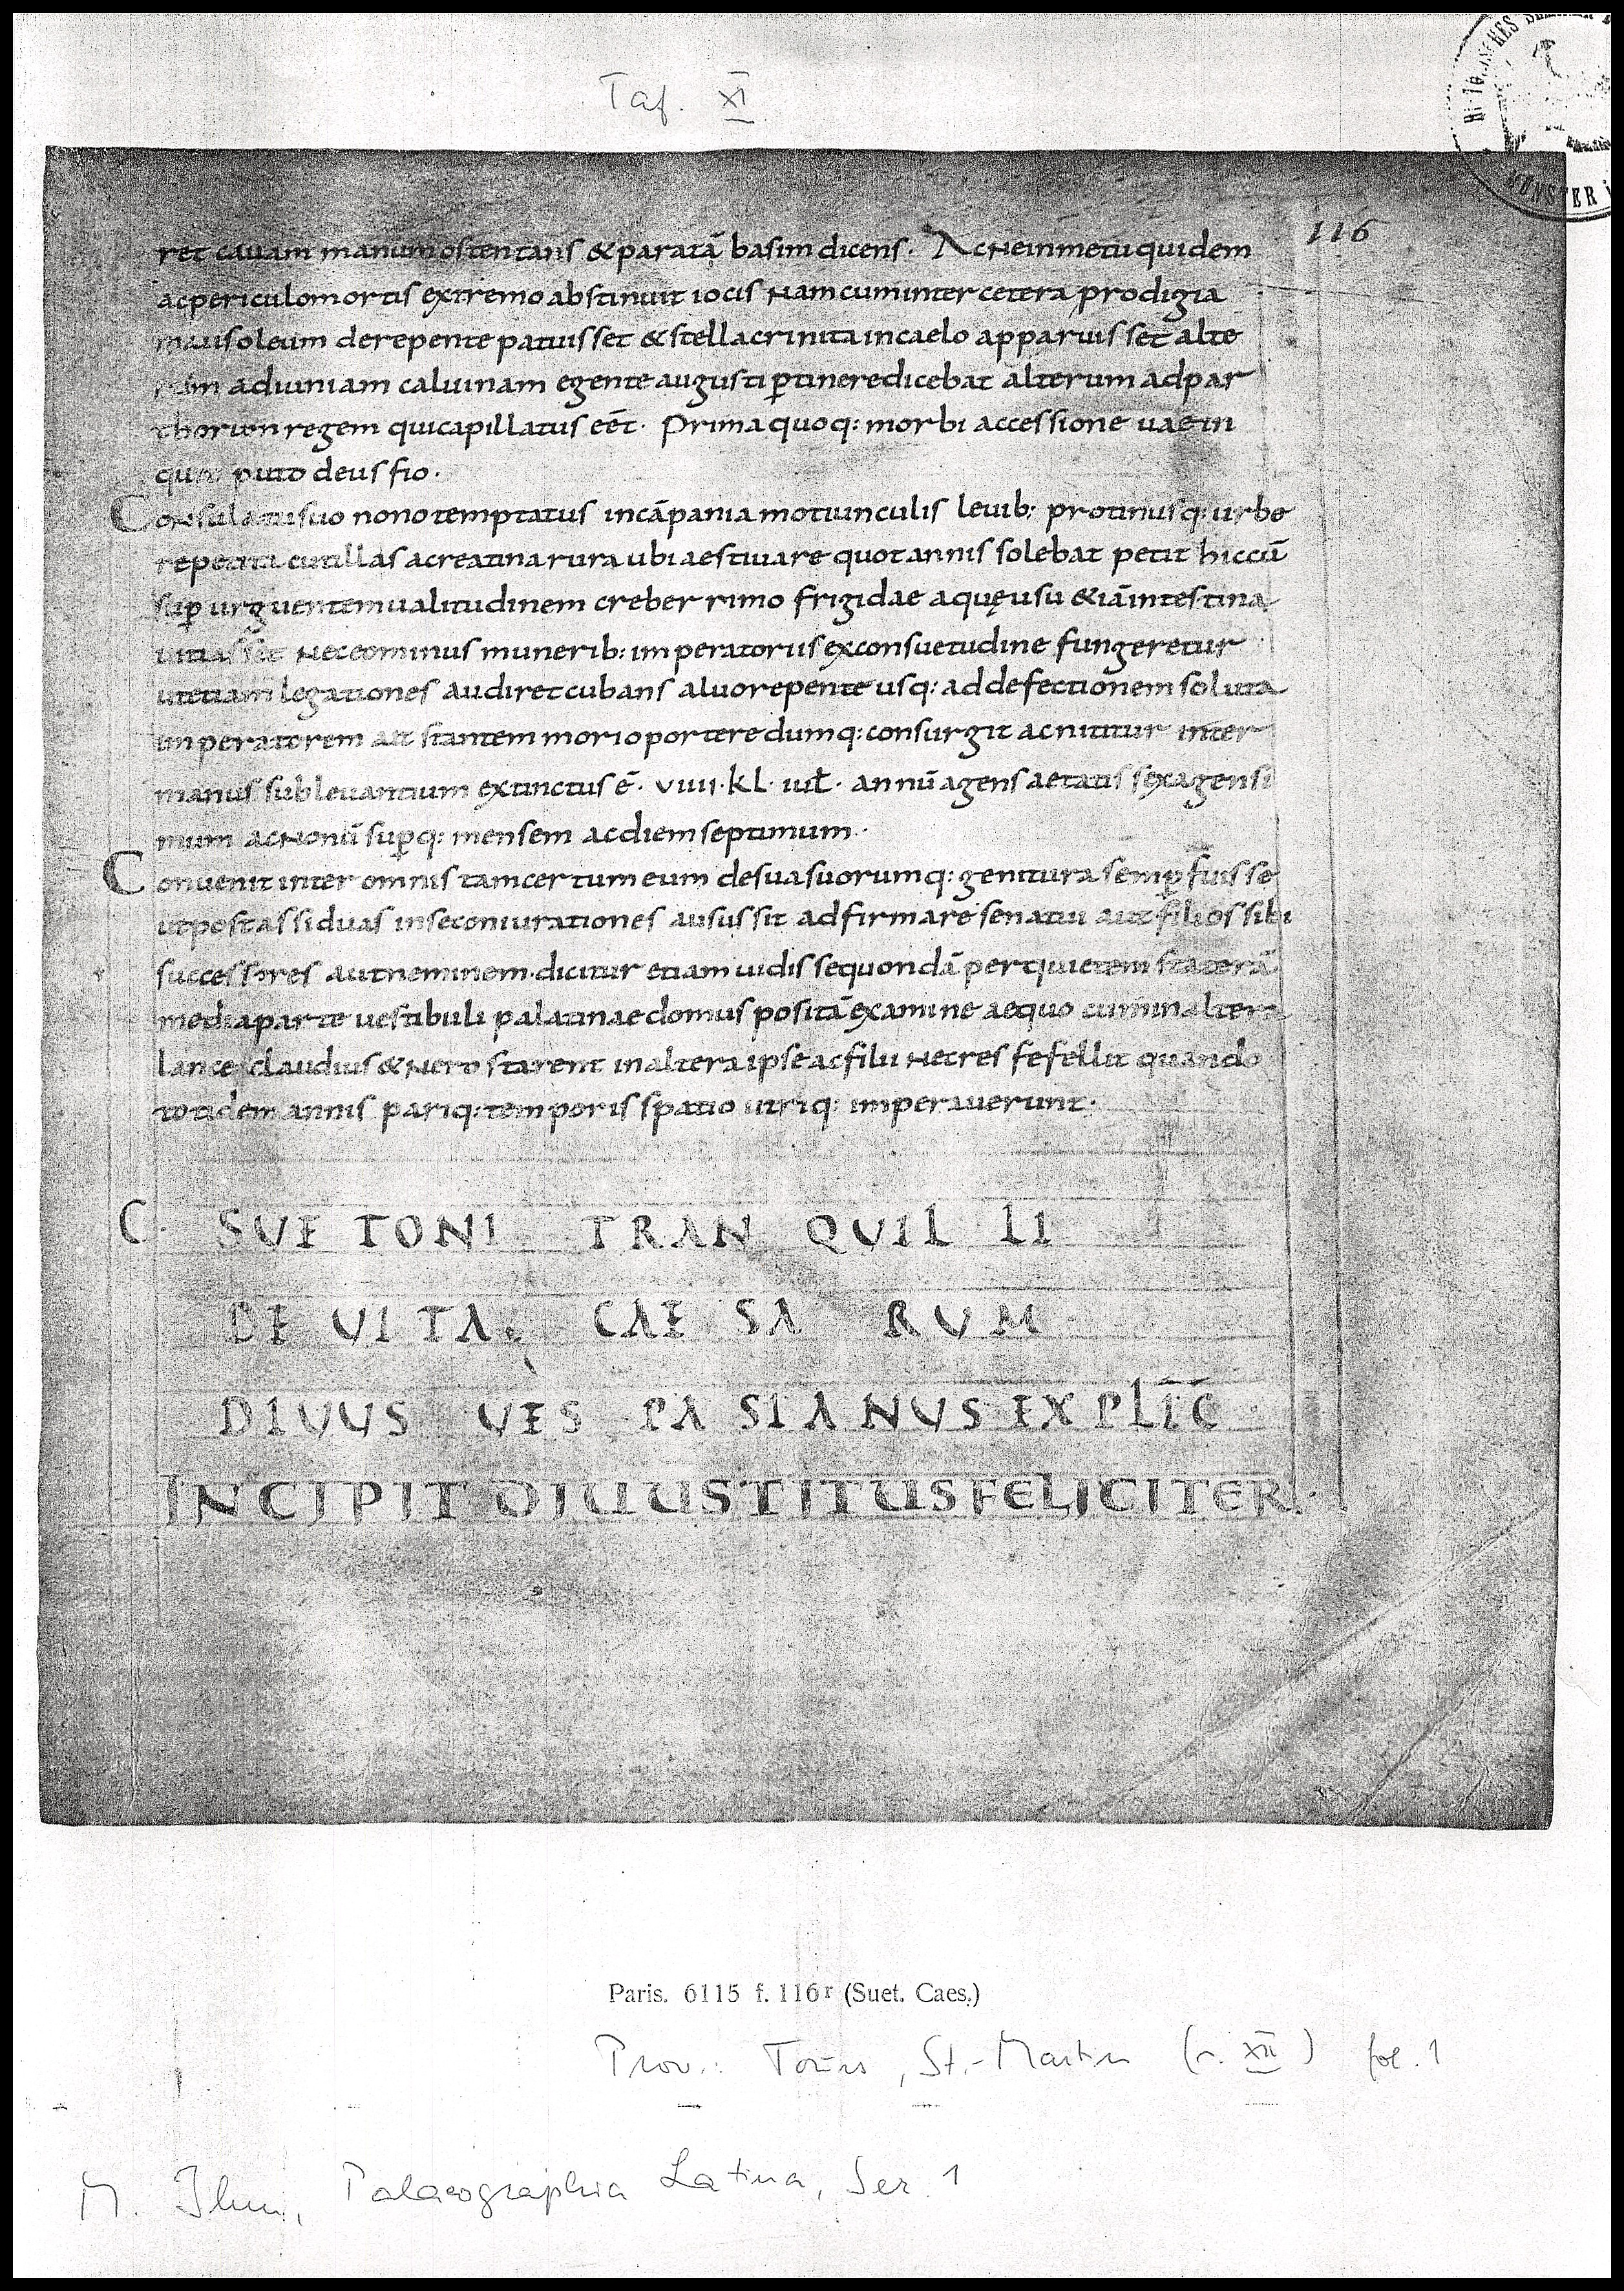 Taf. XI
MÜNSTER i
116
ret cauam manum ostentans & paratā basim dicens. Ac ne in metu quidem
ac periculo mortis extremo abstinuit iocis nam cum inter cetera prodigia
mausoleum derepente patuisset & stella crinita in caelo apparuisset alte
rum ad iuniam caluinam e gente augusti ptinere dicebat alterum ad par
thorum regem qui capillatus eēt. Prima quoq: morbi accessione uae in
qu puto deus fio.
Consulatu suo nono temptatus in cāpania motiunculis leuib: protinusq: urbe
repetita cutilias ac reatina rura ubi aestiuare quotannis solebat petit hic cū
sup urguentem ualitudinem creberrimo frigidae aquę usu & iā intestina
uitiasset nec eo minus munerib: imperatoriis ex consuetudine fungeretur
ut etiam legationes audiret cubans aluo repente usq: ad defectionem soluta
imperatorem ait stantem mori oportere dumq: consurgit ac nititur inter
manus subleuantium extinctus ē. VIIII. KL. iuł. annū agens aetatis sexagensi
mum ac nonū supq: mensem ac diem septimum.
Conuenit inter omnis tam certum eum de sua suorumq: genitura semp fuisse
ut post assiduas in se coniurationes ausus sit adfirmare senatui aut filios sibi
successores aut neminem. dicitur etiam uidisse quondā per quietem staterā
media parte uestibuli palatinae domus positā examine aequo cum in altera
lance claudius & nero starent in altera ipse ac filii nec res fefellit quando
totidem annis pariq: temporis spatio utriq: imperauerunt.
C. SUETONI TRANQUILLI
DE UITA CAESARUM
DIUUS UESPASIANUS EXPLIC̄
INCIPIT DIUUS TITUS FELICITER.
Paris. 6115 f. 116r (Suet. Caes.)
Prov.: Tours, St.-Martin (s. XII) fol. 1
M. Ihm, Palaeographia Latina, Ser. 1